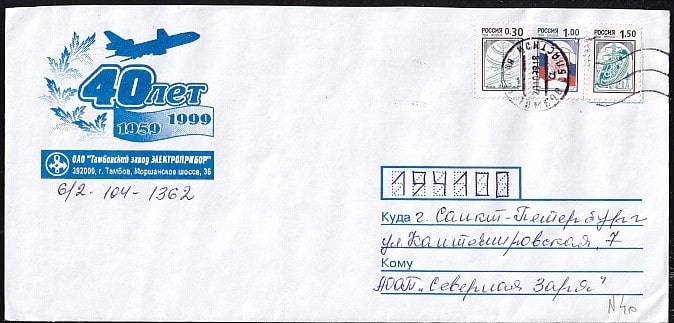 40 лет
1959 1999
ОАО "Тамбовский завод ЭЛЕКТРОПРИБОР"
392000, г. Тамбов, Моршанское шоссе, 36
6/2-104-1362
РОССИЯ 0.30
РОССИЯ 1.00
РОССИЯ 1.50
194100
Куда г. Санкт-Петербург
ул. Кантемировская, 7
Кому
АООТ „Северная Заря"